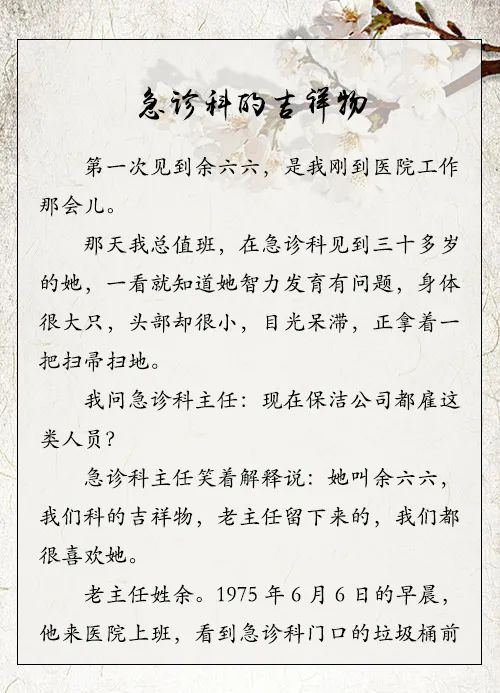 急诊科的吉祥物
第一次见到余六六，是我刚到医院工作
那会儿。
那天我总值班，在急诊科见到三十多岁
的她，一看就知道她智力发育有问题，身体
很大只，头部却很小，目光呆滞，正拿着一
把扫帚扫地。
我问急诊科主任：现在保洁公司都雇这
类人员？
急诊科主任笑着解释说：她叫余六六，
我们科的吉祥物，老主任留下来的，我们都
很喜欢她。
老主任姓余。1975 年 6 月 6 日的早晨，
他来医院上班，看到急诊科门口的垃圾桶前